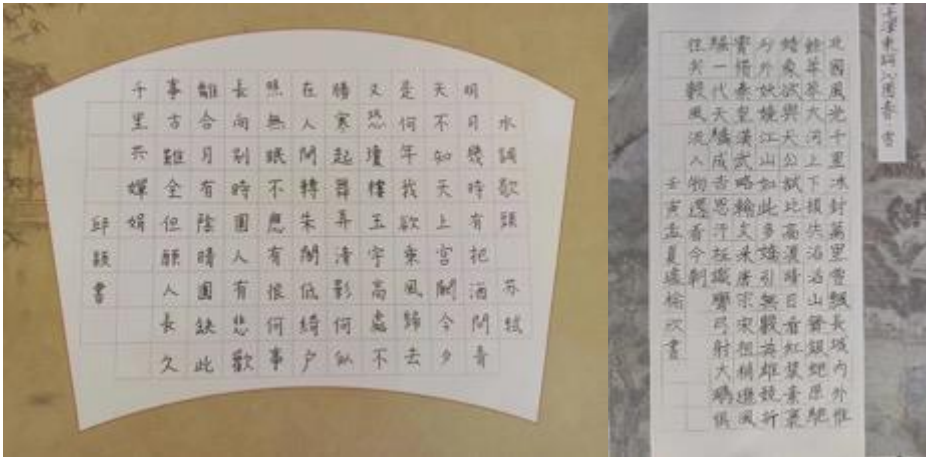 水調歌頭 苏軾
明月幾時有把酒問青
天不知天上宮闕今夕
是何年我欲乘風歸去
又恐瓊樓玉宇高處不
勝寒起舞弄清影何似
在人間轉朱閣低綺户
照無眠不應有恨何事
長向別時圓人有悲歡
離合月有陰晴圓缺此
事古難全但願人長久
千里共嬋娟
邱穎書
毛澤東詞沁園春 雪
北國風光千里冰封萬里雪飄長城内外惟
餘莽莽大河上下頓失滔滔山舞銀蛇原馳
蠟象欲與天公試比高須晴日看紅裝素裹
分外妖嬈江山如此多嬌引無數英雄競折
腰惜秦皇漢武略輸文采唐宗宋祖稍遜風
騷一代天驕成吉思汗祇識彎弓射大鵰俱
往矣數風流人物還看今朝
壬寅孟夏盧榆欣書